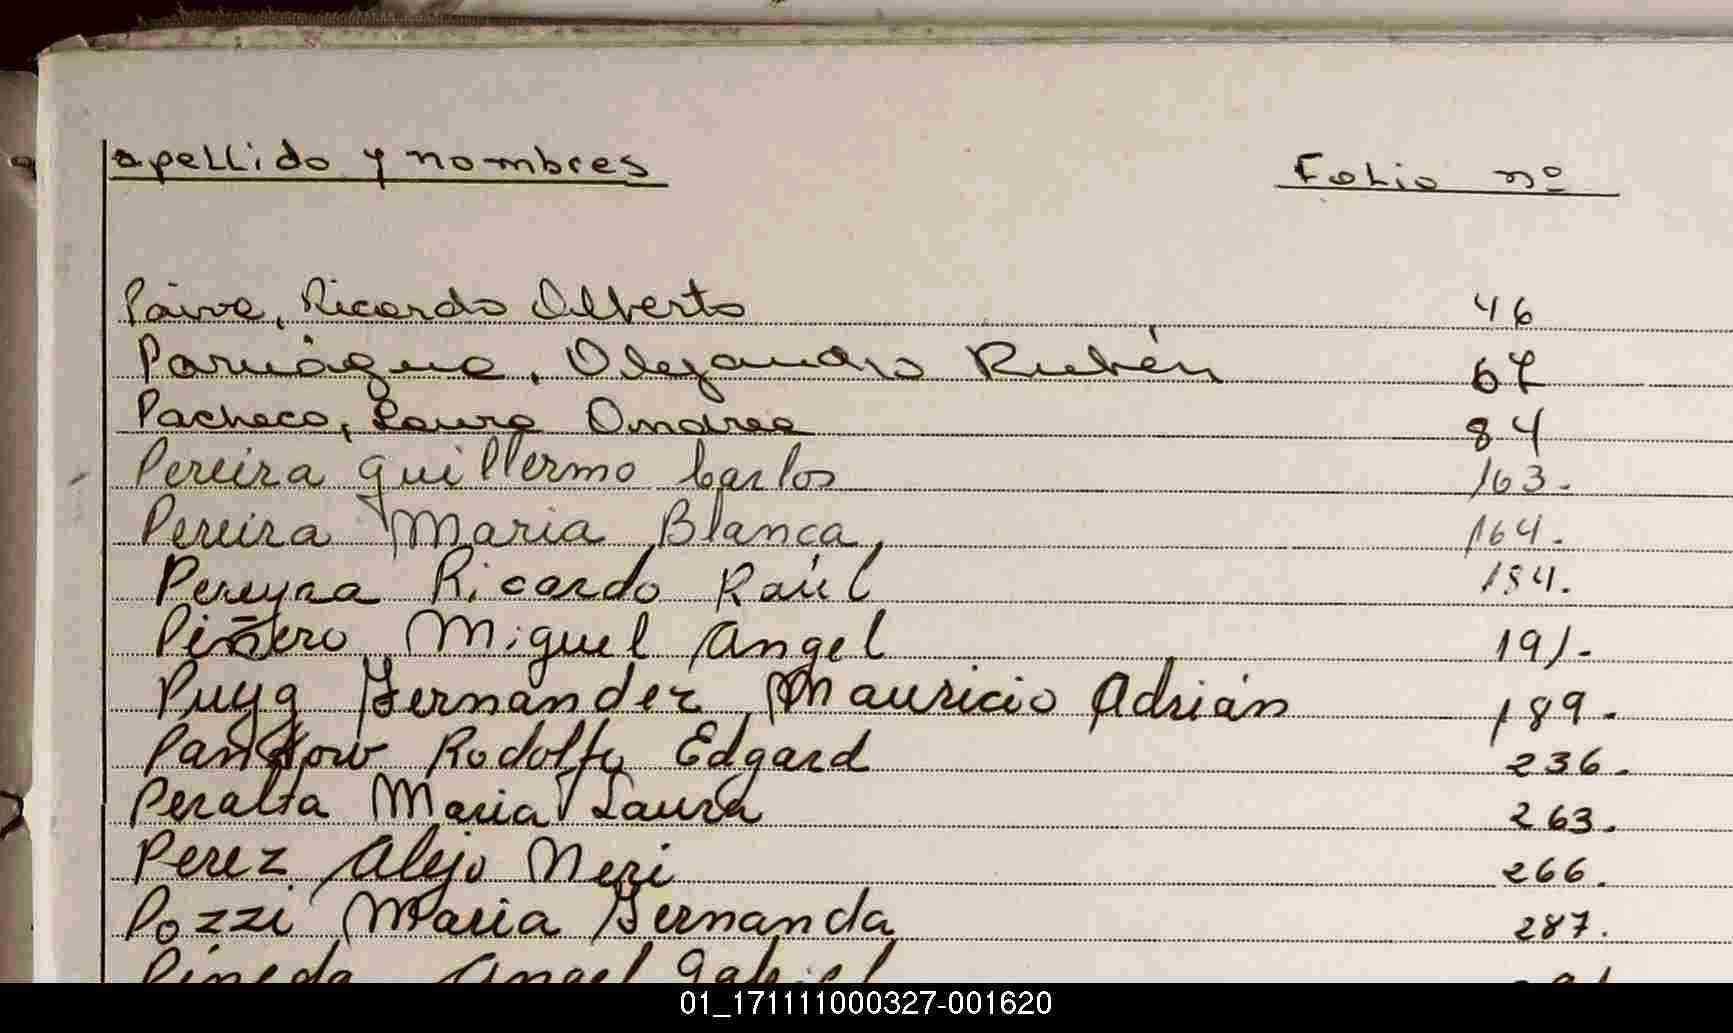 apellido y nombres Folio nº
Paiva, Ricardo Alberto 46
Paruágua, Alejandro Rubén 67
Pacheco, Laura Andrea 84
Pereira Guillermo Carlos 163.
Pereira Maria Blanca, 164.
Pereyra Ricardo Raúl 184.
Piñero Miguel Angel 191.
Puyg Fernandez Mauricio Adrián 189.
Rodolfo Edgard 236.
Peralta Maria Laura 263.
Perez Alejo Neri 266.
Pozzi Maria Fernanda 287.
Pineda Angel Gabriel
01_171111000327-001620